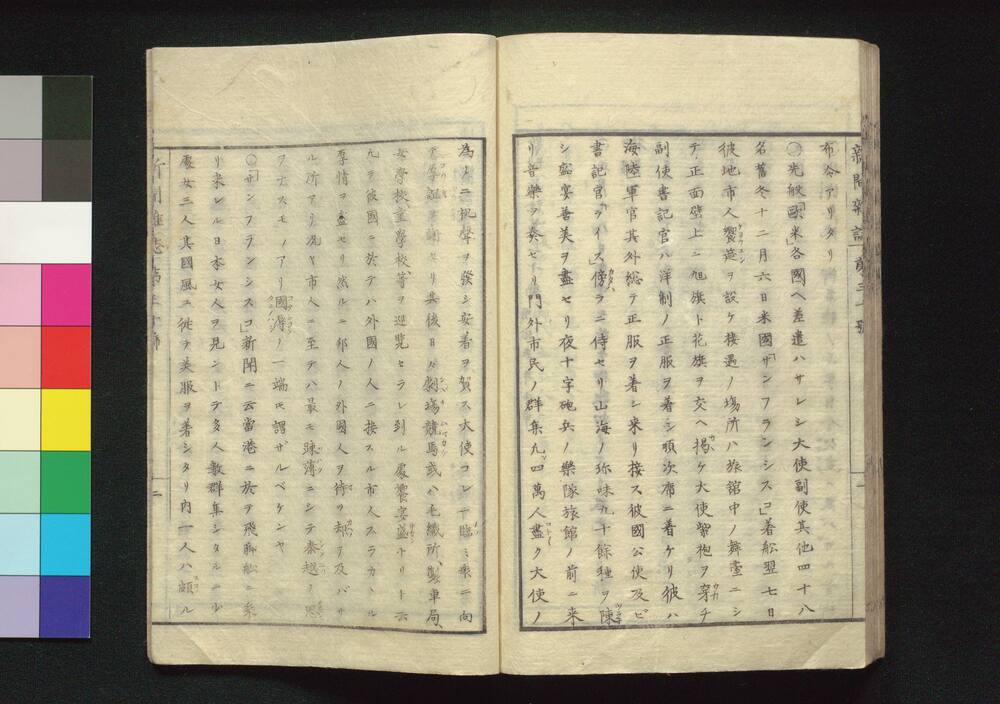 新聞雑誌第三十號
布令アリタリ
○先般「歐米」各國ヘ差遣ハサレシ大使副使其他四十八
名舊冬十二月六日米國「サンフランシスコ」着舩翌七日
彼地市人饗筵ヲ設ケ接遇ノ場所ハ旅舘中ノ舞臺ニシ
テ正面壁上ニ旭旗ト花旗ヲ交ヘ掲ケ大使紫袍ヲ穿チ
副使書記官ハ洋制ノ正服ヲ着シ順次席ニ着ケリ彼ハ
海陸軍官其外総テ正服ヲ着シ來リ接ス彼國公使及ビ
書記官ラハイス傍ラニ侍セリ山海ノ珎味九十餘種ヲ陳
シ宴善美ヲ盡セリ夜十字砲兵ノ樂隊旅館ノ前ニ来
リ音樂ヲ奏セリ門外市民ノ群集凢四萬人盡ク大使ノ
為メニ祝聲ヲ發シ安着ヲ賀ス大使コレニ臨ミ衆ニ向
テセリ其後日々劇塲競馬或ハ毛織所、製車局、
女學校童學校、等ヲ巡覧セラレ到ル處饗宴盛ナリト云
凢ソ彼國ニ於テハ外國ノ人ニ接スル市人スラカヽル
厚情ヲ盡セリ然ルニ邦人ノ外國人ヲ待ツ却テ及バサ
ル所アリ况ヤ市人ニ至テハ最モ踈薄ニシテ秦越ノ思
ヲナスモノアリ國ノ一端ト謂ザルベケンヤ
○「サンフランシスコ」新聞ニ云當港ニ於テ飛脚舩ニ乗
リ来レル日本女人ヲ見ントテ多人數群集シタルニ少
處女三人其國風ニ從テ美服ヲ着シタリ内一人ハ頗ル
新聞雑誌第三十號
二